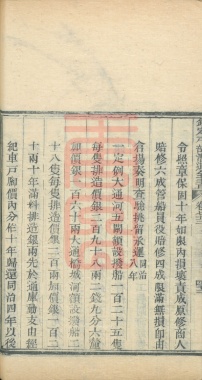 令照章保固十年如限內損壞責成原修商人
賠修六成管船員役賠修四成限滿無損即由
倉場奏明查驗挑留承運同治八年
一定例大通河五閘額設撥船一百二十五隻
每隻排造價銀二百九十八兩二錢九分六釐
加價銀一百六十兩大通橋城河額設撥船
十八隻每隻排造價銀一百兩加價銀一百
十兩十年滿料排造銀兩先於通庫動支由經
紀車戶腳價內分作十年歸還同治四年以後